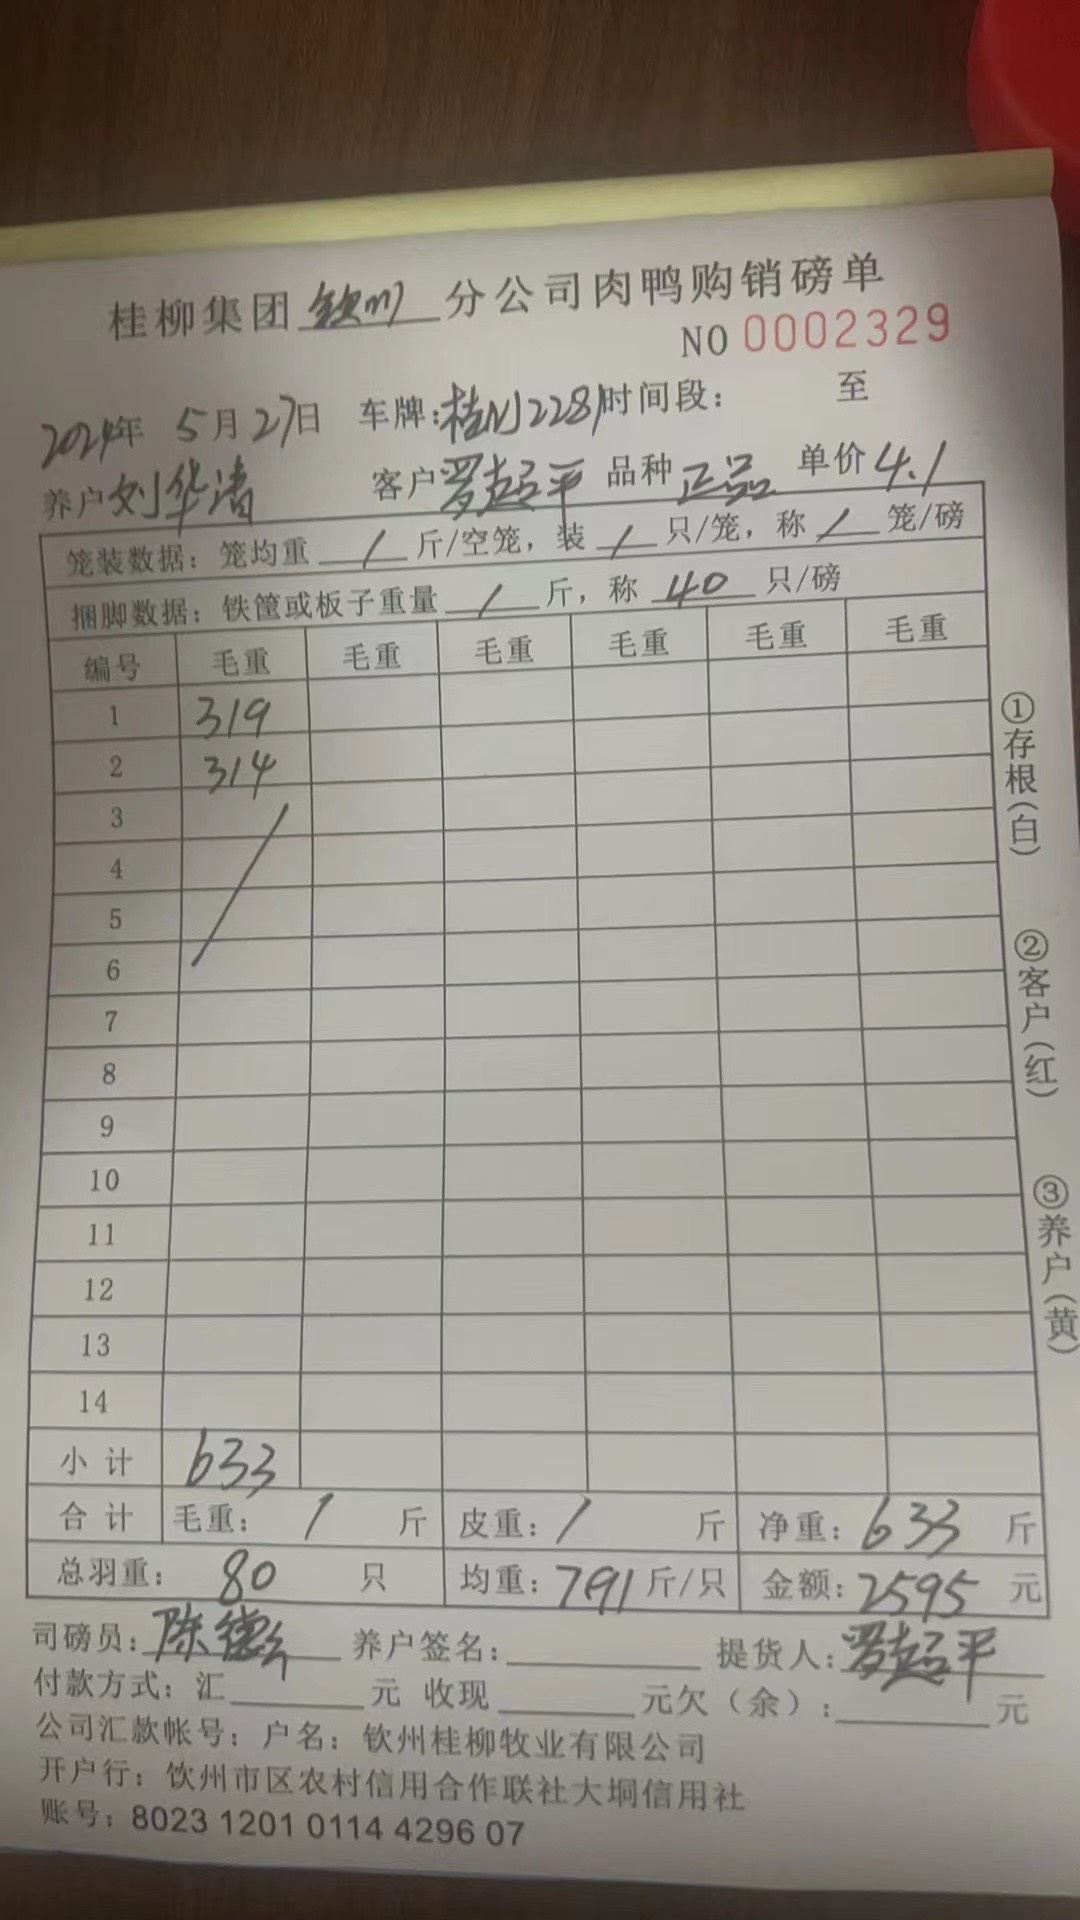 桂柳集团钦州分公司肉鸭购销磅单
NO 0002329
2024年 5月27日 车牌:桂N2281时间段: 至
养户刘华清 客户罗超平 品种正品 单价4.1
笼装数据:笼均重 / 斤/空笼,装 / 只/笼,称 / 笼/磅
捆脚数据:铁筐或板子重量 / 斤,称 40 只/磅
编号 毛重 毛重 毛重 毛重 毛重 毛重
1 319
2 314
3
4
5
6
7
8
9
10
11
12
13
14
小计 633
合计 毛重: / 斤 皮重: / 斤 净重: 633 斤
总羽重: 80 只 均重: 791 斤/只 金额: 2595 元
司磅员: 陈德 养户签名: 提货人: 罗超平
付款方式:汇 元 收现 元欠(余): 元
公司汇款帐号:户名:钦州桂柳牧业有限公司
开户行:饮州市区农村信用合作联社大垌信用社
账号:8023 1201 0114 4296 07
①存根(白)
②客户(红)
③养户(黄)